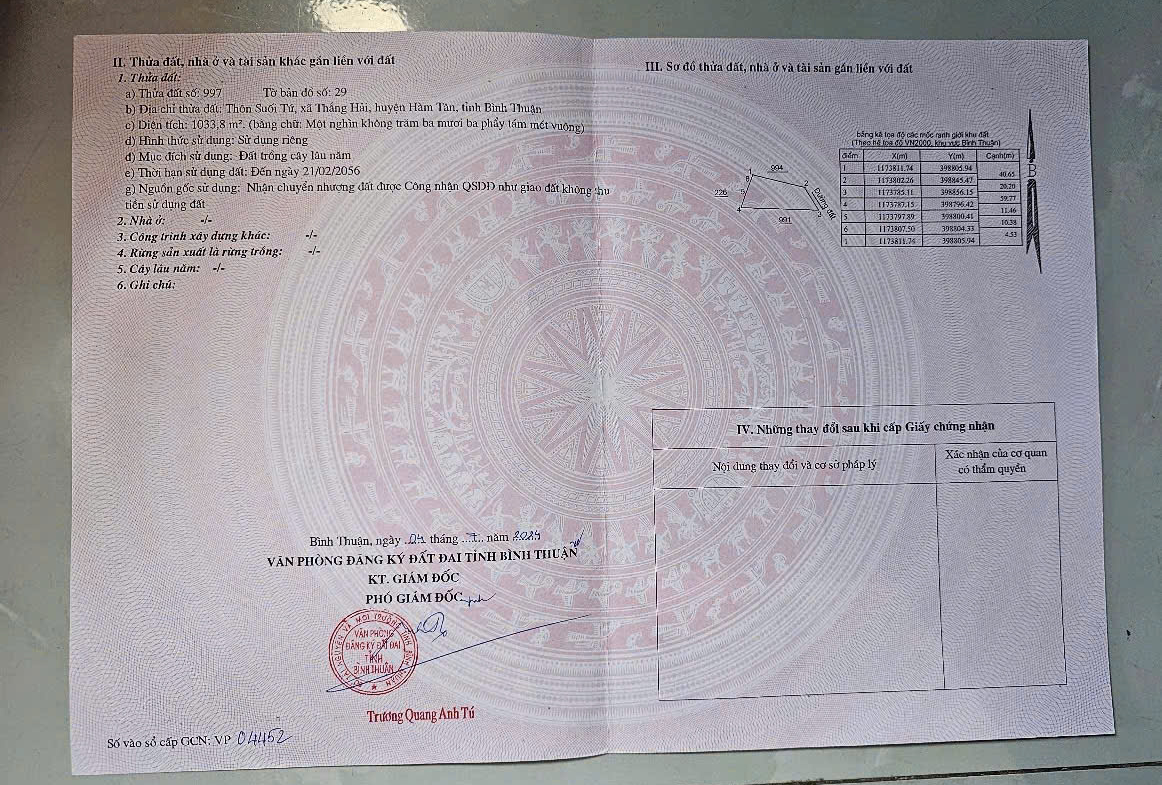 II. Thửa đất, nhà ở và tài sản khác gắn liền với đất
1. Thửa đất:
a) Thửa đất số: 997 Tờ bản đồ số: 29
b) Địa chỉ thửa đất: Thôn Suối Tứ, xã Thắng Hải, huyện Hàm Tân, tỉnh Bình Thuận
c) Diện tích: 1033,8 m². (bằng chữ: Một nghìn không trăm ba mươi ba phẩy tám mét vuông)
d) Hình thức sử dụng: Sử dụng riêng
đ) Mục đích sử dụng: Đất trồng cây lâu năm
e) Thời hạn sử dụng đất: Đến ngày 21/02/2056
g) Nguồn gốc sử dụng: Nhận chuyển nhượng đất được Công nhận QSDĐ như giao đất không thu
tiền sử dụng đất
2. Nhà ở: -/-
3. Công trình xây dựng khác: -/-
4. Rừng sản xuất là rừng trồng: -/-
5. Cây lâu năm: -/-
6. Ghi chú:
Bình Thuận, ngày 04 tháng năm
VĂN PHÒNG ĐĂNG KÝ ĐẤT ĐAI TỈNH BÌNH THUẬN
KT. GIÁM ĐỐC
PHÓ GIÁM ĐỐC
VĂN PHÒNG
ĐĂNG KÝ ĐẤT ĐAI
TỈNH
BÌNH THUẬN
Trương Quang Anh Tú
Số vào sổ cấp GCN: VP 04452
III. Sơ đồ thửa đất, nhà ở và tài sản gắn liền với đất
994
226
991
Đường đất
B
bảng kê tọa độ các mốc ranh giới khu đất
(Theo hệ tọa độ VN2000, khu vực Bình Thuận)
điểm X(m) Y(m) Cạnh(m)
1 1173811.74 398805.94
40.65
2 1173802.26 398845.47
20.20
3 1173785.11 398856.15
59.77
4 1173787.15 398796.42
11.46
5 1173797.89 398800.41
10.38
6 1173807.50 398804.33
4.53
1 1173811.74 398805.94
IV. Những thay đổi sau khi cấp Giấy chứng nhận
Nội dung thay đổi và cơ sở pháp lý
Xác nhận của cơ quan
có thẩm quyền